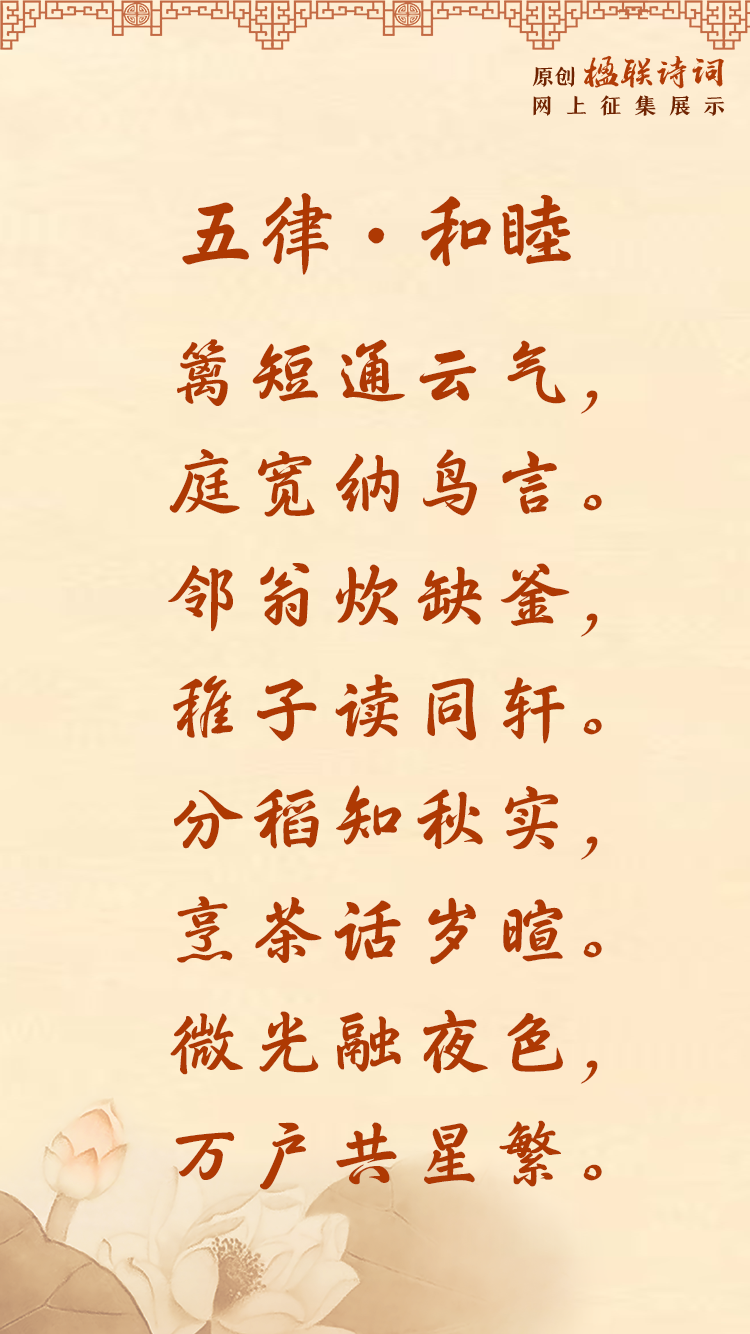 原创 楹联诗词
网上征集展示
五律·和睦
篱短通云气，
庭宽纳鸟言。
邻翁炊缺釜，
稚子读同轩。
分稻知秋实，
烹茶话岁暄。
微光融夜色，
万户共星繁。